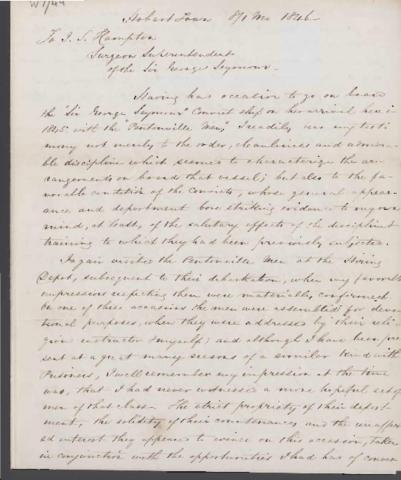 W1/44
Hobart Town 8/1 Mo 1846
To J. S. Hampton
Surgeon Superintendent
of the Sir George Seymour.
Having had occasion to go on board
the "Sir George Seymour" Convict ship on her arrival here in
1845 with the "Pentonville Men," I readily give my testi
mony not merely to the order, cleanliness and admira
ble discipline which seemed to characterize the ar
rangements on board that vessel; but also to the fa
vorable condition of the Convicts, whose general appear
ance and deportment bore striking evidence to my own
mind, at least, of the salutary effects of the disciplinet
training to which they had been previously subjected.
I again visited the Pentonville Men at the Hiring
Depot, subsequent to their debarkation, when my favorable
impressions respecting them were materially confirmed.
On one of these occasions the men were assembled for devo
tional purposes, when they were addressed by their reli
gious instructor & myself; and although I have been pre
sent at a great many seasons of a similar kind with
Prisoners, I well remember my impression at the time
was, that I had never witnessed a more hopeful set of
men of that class. The strict propriety of their deport
ment, the solidity of their countenances and the unaffec
ted interest they appeared to evince on this occasion, taken
in conjunction with the opportunities I had had of conver